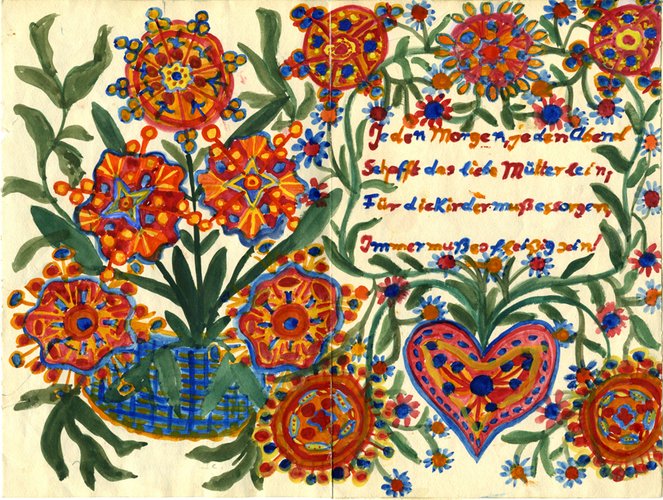 Jeden Morgen, jeden Abend
Schafft das liebe Mütterlein,
Für die Kinder muß es sorgen,
Immer muß es fleißig sein!